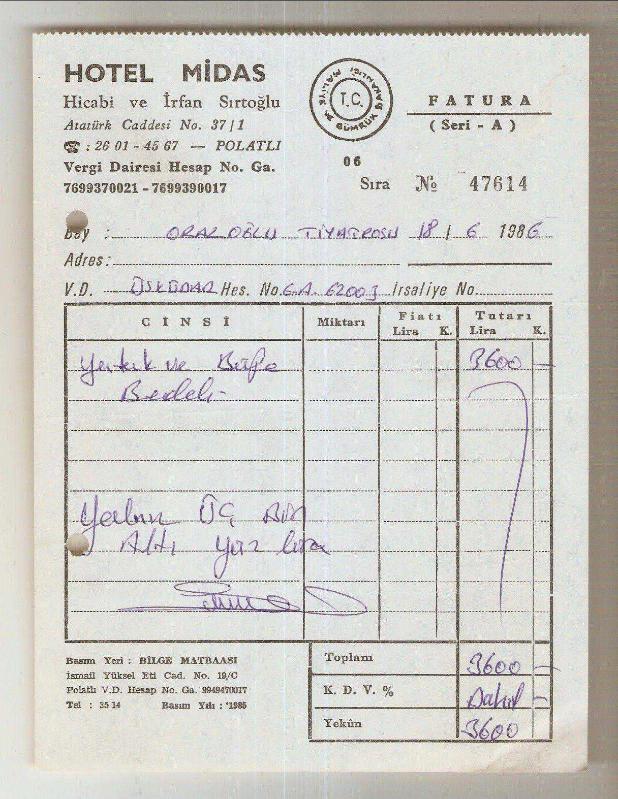 HOTEL MİDAS
Hicabi ve İrfan Sırtoğlu
Atatürk Caddesi No. 37/1
☎ : 26 01 - 45 67 — POLATLI
Vergi Dairesi Hesap No. Ga.
7699370021 - 7699390017
T.C.
MALİYE VE GÜMRÜK BAKANLIĞI
FATURA
( Seri - A )
06
Sıra № 47614
Bay : ORALOĞLU TİYATROSU 18 / 6 1986
Adres:
V.D. ÜSKÜDAR Hes. No. G.A. 62003 İrsaliye No.
CİNSİ Miktarı Fiatı Tutarı
Lira K. Lira K.
Yatak ve Büfe 3600 —
Bedeli
Yalnız ÜÇ Bin
Altı yüz lira
Basım Yeri : BİLGE MATBAASI
İsmail Yüksel Eti Cad. No. 19/C
Polatlı V.D. Hesap No. Ga. 9949470017
Tel : 35 14 Basım Yılı : 1985
Toplam 3600 —
K. D. V. % Dahil —
Yekün 3600